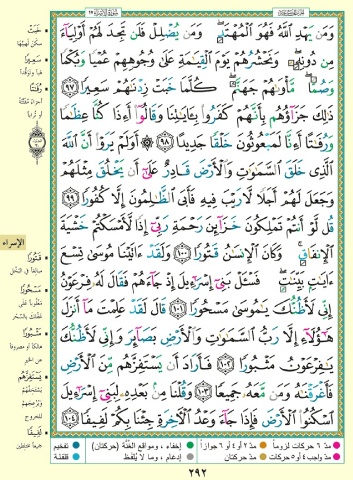 وَمَن يَهْدِ ٱللَّهُ فَهُوَ ٱلْمُهْتَدِ وَمَن يُضْلِلْ فَلَن تَجِدَ لَهُمْ أَوْلِيَآءَ
مِن دُونِهِۦ وَنَحْشُرُهُمْ يَوْمَ ٱلْقِيَٰمَةِ عَلَىٰ وُجُوهِهِمْ عُمْيًا وَبُكْمًا
وَصُمًّا مَّأْوَىٰهُمْ جَهَنَّمُ كُلَّمَا خَبَتْ زِدْنَٰهُمْ سَعِيرًا ٩٧
ذَٰلِكَ جَزَآؤُهُم بِأَنَّهُمْ كَفَرُوا۟ بِـَٔايَٰتِنَا وَقَالُوٓا۟ أَءِذَا كُنَّا عِظَٰمًا
وَرُفَٰتًا أَءِنَّا لَمَبْعُوثُونَ خَلْقًا جَدِيدًا ٩٨ أَوَلَمْ يَرَوْا۟ أَنَّ ٱللَّهَ
ٱلَّذِى خَلَقَ ٱلسَّمَٰوَٰتِ وَٱلْأَرْضَ قَادِرٌ عَلَىٰٓ أَن يَخْلُقَ مِثْلَهُمْ
وَجَعَلَ لَهُمْ أَجَلًا لَّا رَيْبَ فِيهِ فَأَبَى ٱلظَّٰلِمُونَ إِلَّا كُفُورًا ٩٩
قُل لَّوْ أَنتُمْ تَمْلِكُونَ خَزَآئِنَ رَحْمَةِ رَبِّىٓ إِذًا لَّأَمْسَكْتُمْ خَشْيَةَ
ٱلْإِنفَاقِ وَكَانَ ٱلْإِنسَٰنُ قَتُورًا ١٠٠ وَلَقَدْ ءَاتَيْنَا مُوسَىٰ تِسْعَ
ءَايَٰتٍۭ بَيِّنَٰتٍ فَسْـَٔلْ بَنِىٓ إِسْرَٰٓءِيلَ إِذْ جَآءَهُمْ فَقَالَ لَهُۥ فِرْعَوْنُ
إِنِّى لَأَظُنُّكَ يَٰمُوسَىٰ مَسْحُورًا ١٠١ قَالَ لَقَدْ عَلِمْتَ مَآ أَنزَلَ
هَٰٓؤُلَآءِ إِلَّا رَبُّ ٱلسَّمَٰوَٰتِ وَٱلْأَرْضِ بَصَآئِرَ وَإِنِّى لَأَظُنُّكَ
يَٰفِرْعَوْنُ مَثْبُورًا ١٠٢ فَأَرَادَ أَن يَسْتَفِزَّهُم مِّنَ ٱلْأَرْضِ
فَأَغْرَقْنَٰهُ وَمَن مَّعَهُۥ جَمِيعًا ١٠٣ وَقُلْنَا مِنۢ بَعْدِهِۦ لِبَنِىٓ إِسْرَٰٓءِيلَ
ٱسْكُنُوا۟ ٱلْأَرْضَ فَإِذَا جَآءَ وَعْدُ ٱلْءَاخِرَةِ جِئْنَا بِكُمْ لَفِيفًا ١٠٤
خَبَتْ
سكن لهبها
سَعِيرًا
رُفَٰتًا
الإسراء
قَتُورًا
مَسْحُورًا
مَثْبُورًا
يَسْتَفِزَّهُم
لَفِيفًا
مدّ ٦ حركات لزوماً
مدّ ٢ أو ٤ أو ٦ جوازاً
إخفاء، ومواقع الغُنَّة (حركتان)
تفخيم
مدّ واجب ٤ أو ٥ حركات
مدّ حركتان
إدغام، وما لا يُلفظ
قلقلة
٢٩٢